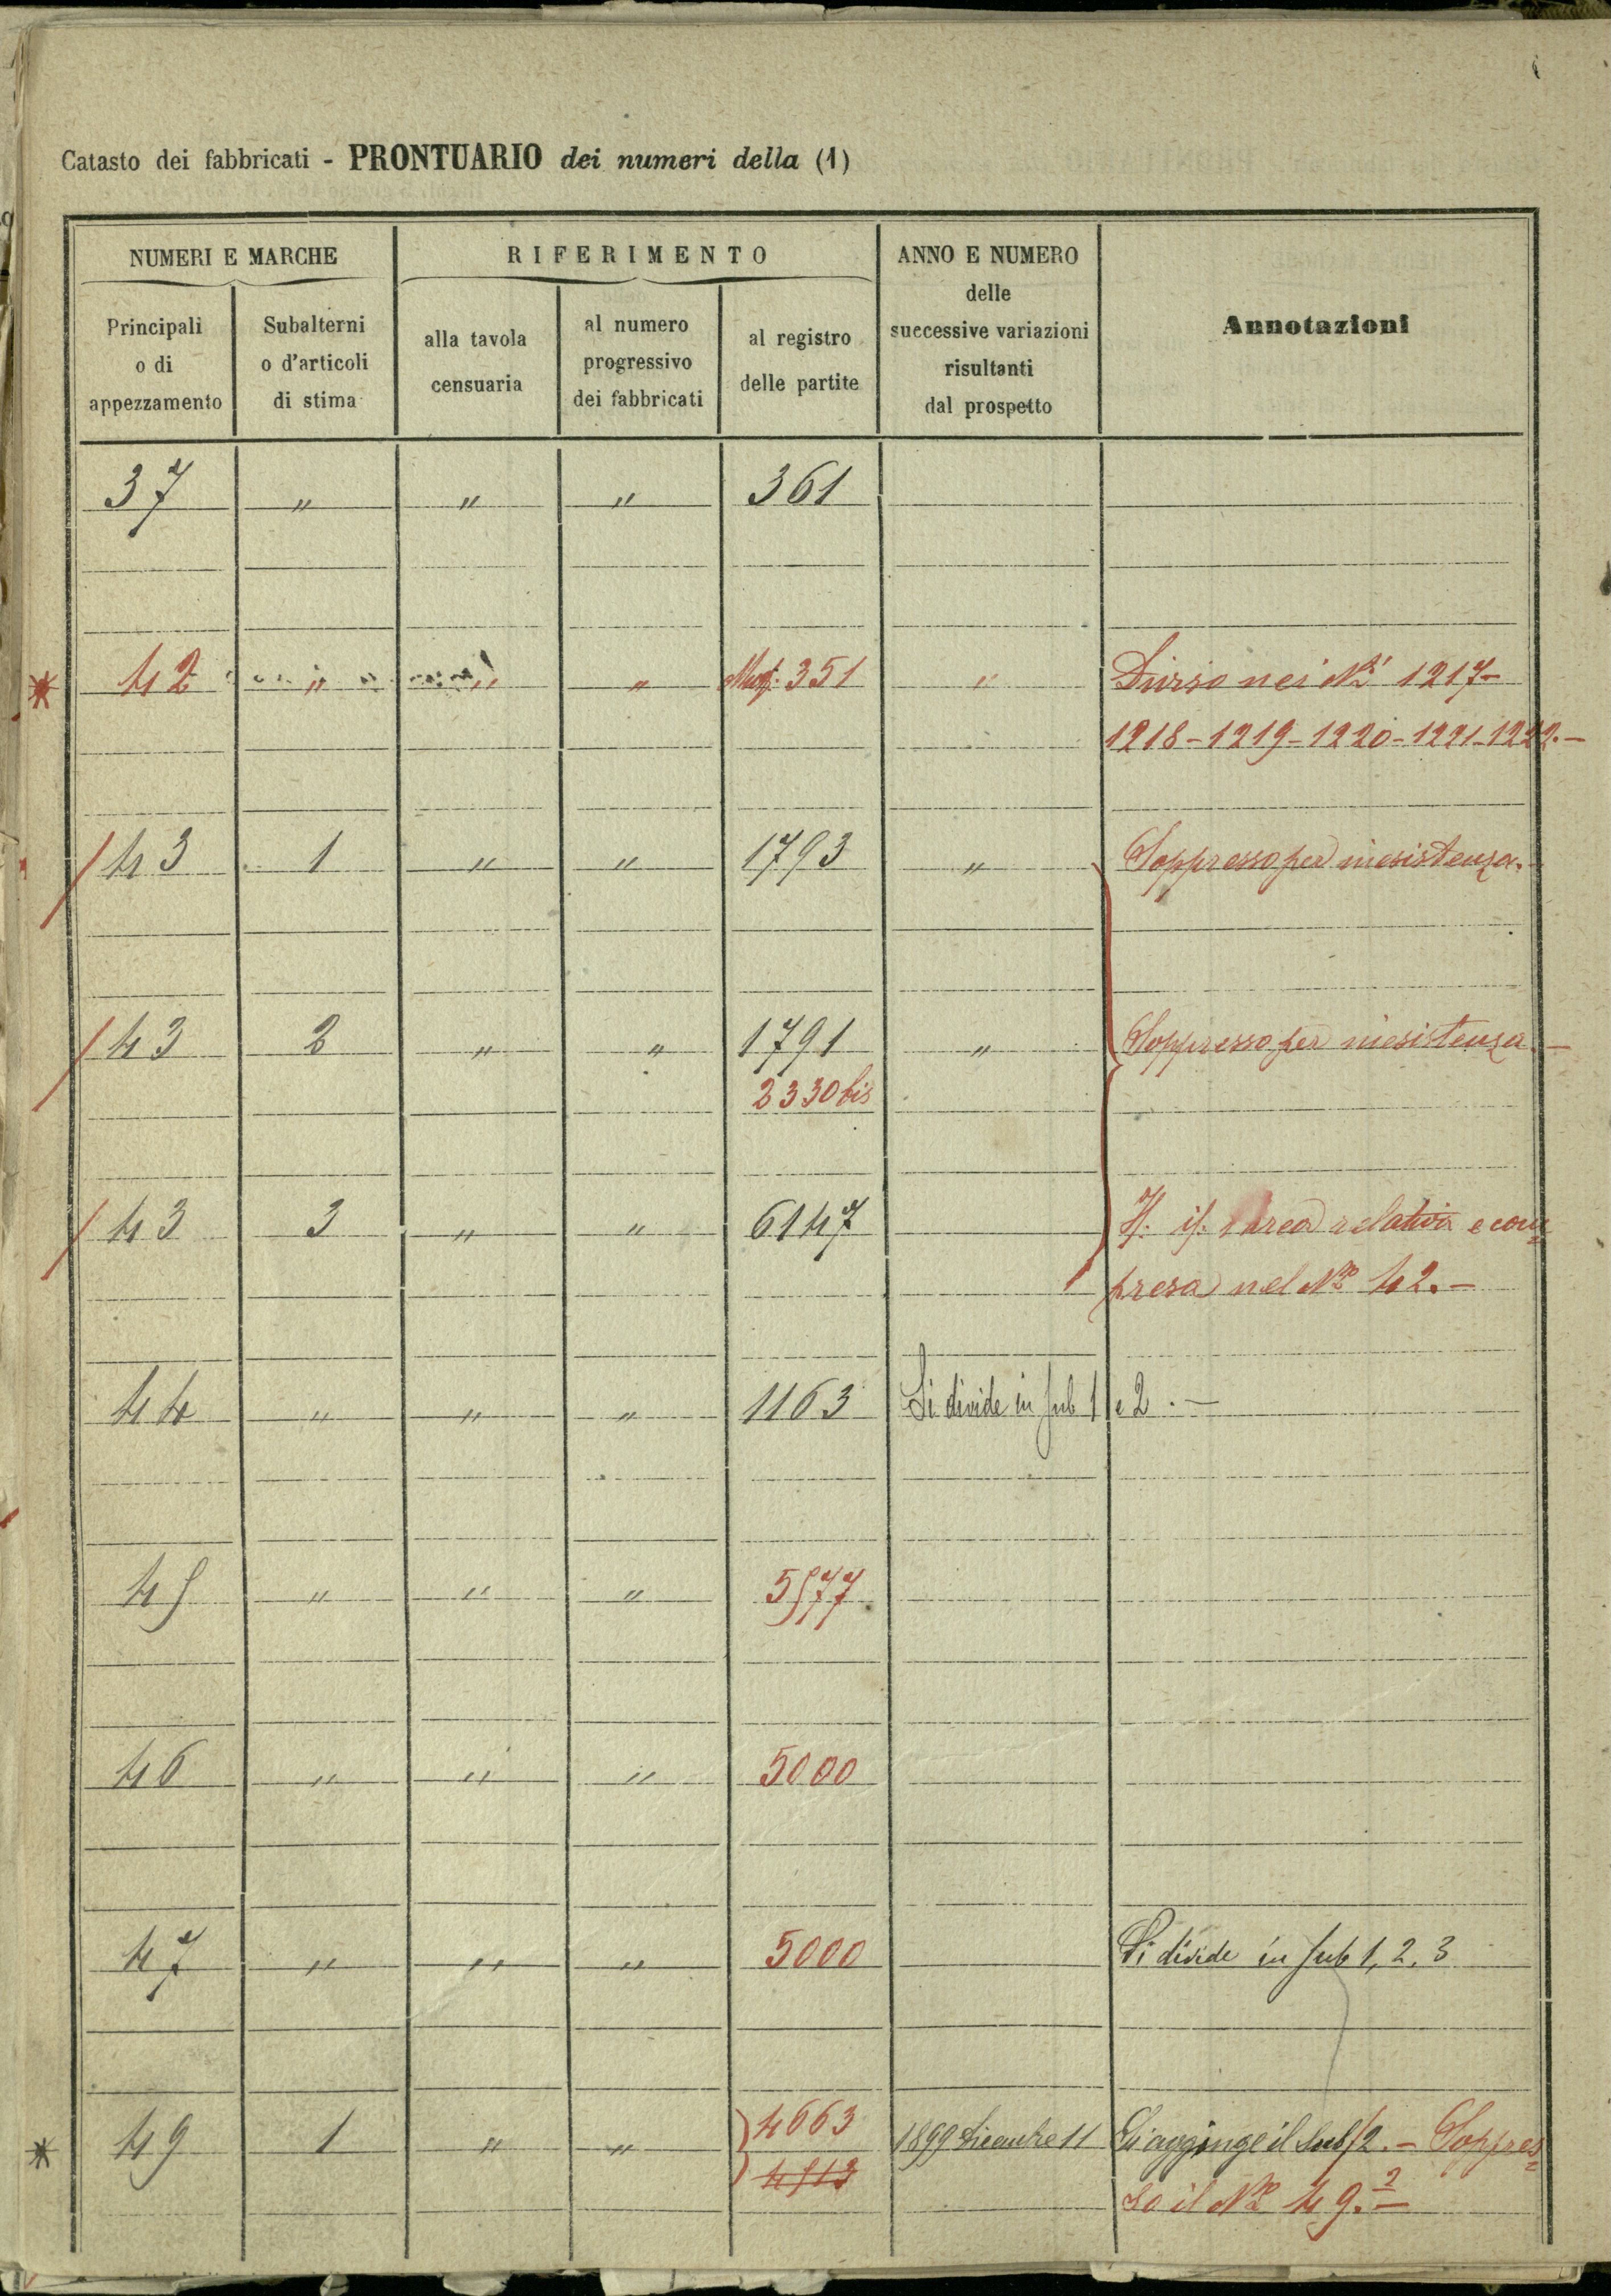 Catasto dei fabbricati - PRONTUARIO dei numeri della (1)
NUMERI E MARCHE
RIFERIMENTO
ANNO E NUMERO
delle
successive variazioni
risultanti
dal prospetto
Annotazioni
Principali
o di
appezzamento
Subalterni
o d'articoli
di stima
alla tavola
censuaria
al numero
progressivo
dei fabbricati
al registro
delle partite
37 " " " 361
42 " " " 351 " Diviso nei Ni 1217-
1218-1219-1220-1221-1222.-
43 1 " " 1793 " Soppresso per inesistenza.-
43 2 " " 1791 " Soppresso per inesistenza.-
2330 bis
43 3 " " 6147 area relativa e com=
presa nel No 42.-
44 " " " 1163 Si divide in sub 1 e 2.-
45 " " " 5577
46 " " " 5000
47 " " " 5000 Si divide in sub 1, 2, 3
49 1 " " 4663 1899 Dicembre 11 Si aggiunge il sub 2.- Soppres=
4513 so il No 49.2-